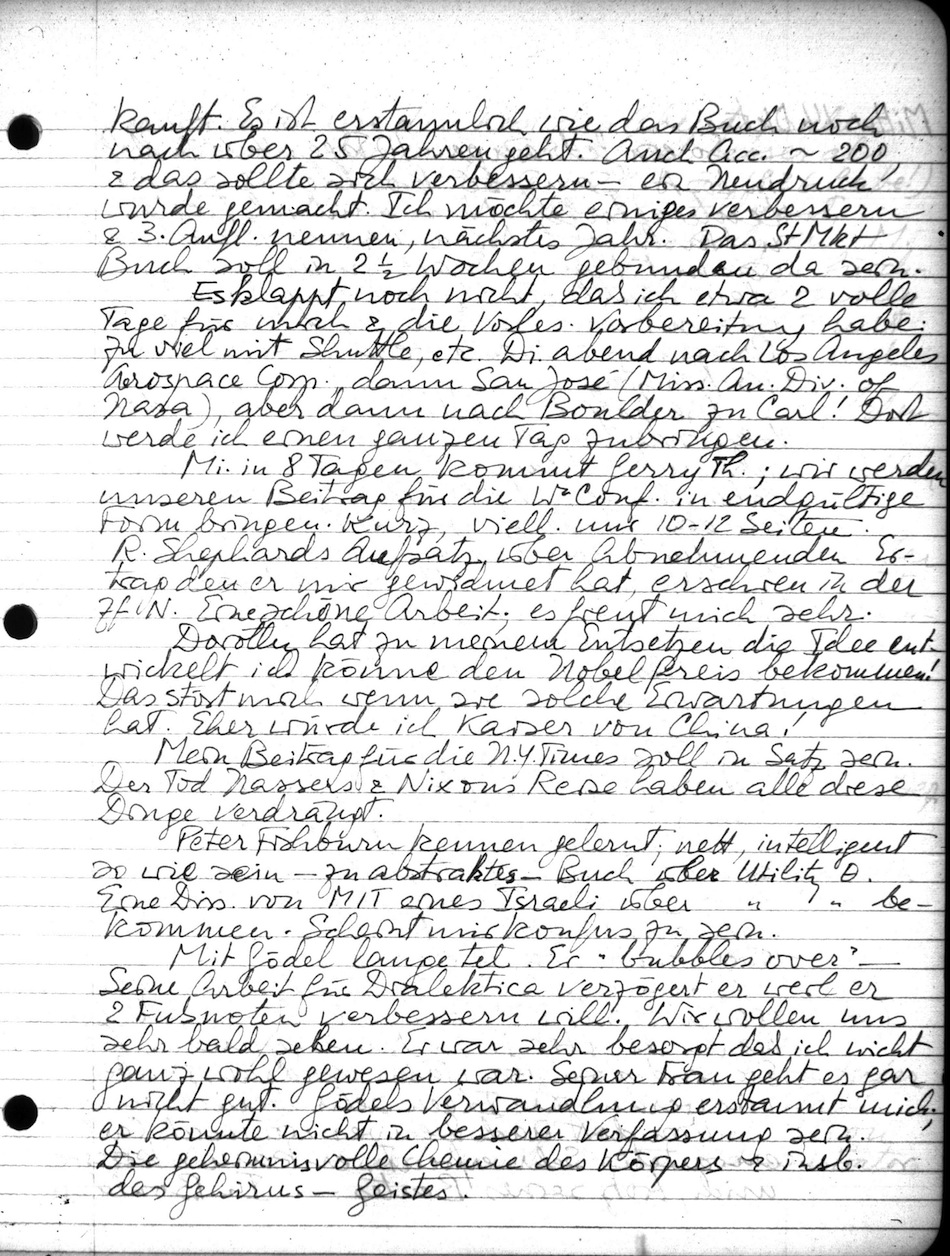 kauft. Es ist erstaunlich wie das Buch noch
nach über 25 Jahren geht. Auch Acc. ~ 200,
& das sollte sich verbessern – ein Neudruck
wurde gemacht. Ich möchte einiges verbessern
& 3. Aufl. nennen, nächstes Jahr. Das StMkt
Buch soll in 2 ½ Wochen gebunden da sein.
Es klappt noch nicht, das ich etwa 2 volle
Tage für mich & die Vorles. Vorbereitung habe.
Zu viel mit Shuttle, etc. Di. abend nach Los Angeles
Aerospace Corp., dann San José (Miss. An. Div. of
Nasa), aber dann nach Boulder zu Carl! Dort
werde ich einen ganzen Tag zubringen.
Mi. in 8 Tagen kommt Gerry Th.; wir werden
unseren Beitrag für die Wa Conf. in endgültige
Form bringen. Kurz, viell. nur 10-12 Seiten.
R. Shephards Aufsatz über Abnehmenden Er-
trag den er mir gewidmet hat, erschien in der
ZfN. Eine schöne Arbeit; es freut mich sehr.
Dorothy hat zu meinem Entsetzen die Idee ent-
wickelt ich könne den Nobel Preis bekommen!
Das stört mich wenn sie solche Erwartungen
hat. Eher würde ich Kaiser von China!
Mein Beitrag für die N.Y. Times soll in Satz sein.
Der Tod Nassers & Nixons Reise haben alle diese
Dinge verdrängt.
Peter Fishburn kennen gelernt; nett, intelligent
so wie sein – zu abstraktes – Buch über Utility Θ.
Eine Diss. von MIT eines Israeli über " " be-
kommen. Scheint mir konfus zu sein.
Mit Gödel lange tel. Er "bubbles over" –
Seine Arbeit für Dialektica verzögert er weil er
2 Fußnoten verbessern will. Wir wollen uns
sehr bald sehen. Er war sehr besorgt das ich nicht
ganz wohl gewesen war. Seiner Frau geht es gar
nicht gut. Gödels Verwandlung erstaunt mich;
er könnte nicht in besserer Verfassung sein.
Die geheimnisvolle Chemie des Körpers & insb.
des Gehirns – Geistes.